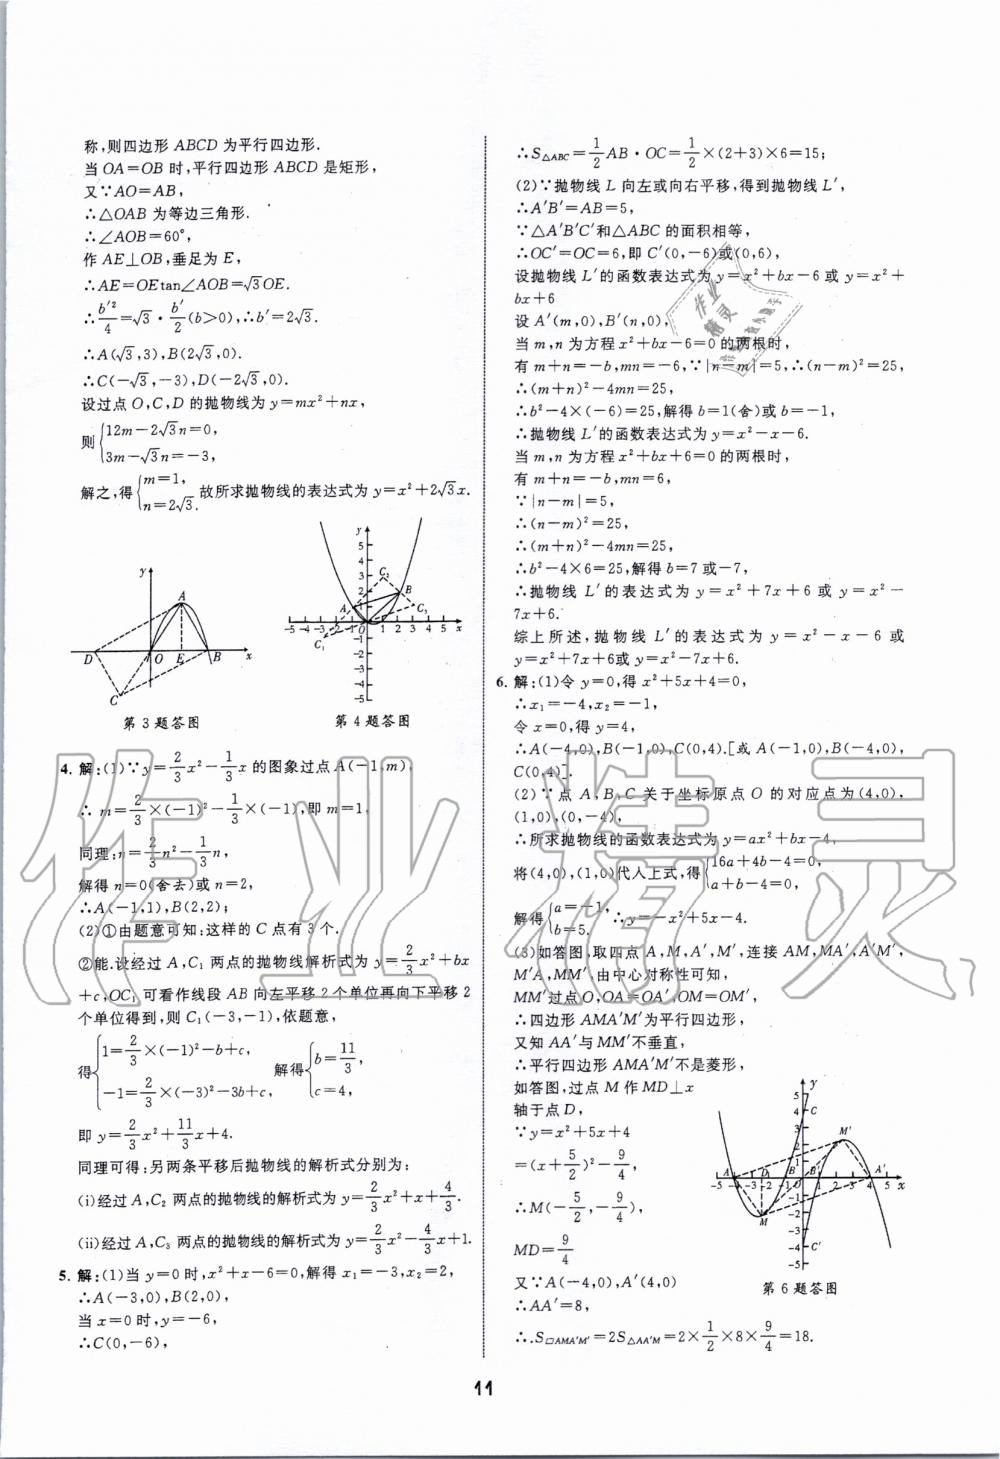 称,则四边形 ABCD 为平行四边形.
当 OA=OB 时,平行四边形 ABCD 是矩形,
又∵AO=AB,
∴△OAB 为等边三角形.
∴∠AOB=60°,
作 AE⊥OB,垂足为 E,
∴AE=OEtan∠AOB=√3OE.
∴b'²/4=√3·b'/2(b>0),∴b'=2√3.
∴A(√3,3),B(2√3,0).
∴C(-√3,-3),D(-2√3,0).
设过点 O,C,D 的抛物线为 y=mx²+nx,
则{12m-2√3n=0,
3m-√3n=-3,
解之,得{m=1,
n=2√3. 故所求抛物线的表达式为 y=x²+2√3x.
第3题答图
第4题答图
4. 解:(1)∵y=2/3x²-1/3x 的图象过点 A(-1,m),
∴m=2/3×(-1)²-1/3×(-1),即 m=1,
同理:n=2/3n²-1/3n,
解得 n=0(舍去)或 n=2,
∴A(-1,1),B(2,2);
(2)①由题意可知:这样的 C 点有 3 个.
②能.设经过 A,C₁ 两点的抛物线解析式为 y=2/3x²+bx
+c,OC₁ 可看作线段 AB 向左平移 2 个单位再向下平移 2
个单位得到,则 C₁(-3,-1),依题意,
得{1=2/3×(-1)²-b+c,
-1=2/3×(-3)²-3b+c,
解得{b=11/3,
c=4,
即 y=2/3x²+11/3x+4.
同理可得:另两条平移后抛物线的解析式分别为:
(i)经过 A,C₂ 两点的抛物线的解析式为 y=2/3x²+x+4/3.
(ii)经过 A,C₃ 两点的抛物线的解析式为 y=2/3x²-4/3x+1.
5. 解:(1)当 y=0 时,x²+x-6=0,解得 x₁=-3,x₂=2,
∴A(-3,0),B(2,0),
当 x=0 时,y=-6,
∴C(0,-6),
∴S△ABC=1/2AB·OC=1/2×(2+3)×6=15;
(2)∵抛物线 L 向左或向右平移,得到抛物线 L′,
∴A′B′=AB=5,
∵△A′B′C′和△ABC 的面积相等,
∴OC′=OC=6,即 C′(0,-6)或(0,6),
设抛物线 L′的函数表达式为 y=x²+bx-6 或 y=x²+
bx+6
设 A′(m,0),B′(n,0),
当 m,n 为方程 x²+bx-6=0 的两根时,
有 m+n=-b,mn=-6,∵|n-m|=5,∴(n-m)²=25,
∴(m+n)²-4mn=25,
∴b²-4×(-6)=25,解得 b=1(舍)或 b=-1,
∴抛物线 L′的函数表达式为 y=x²-x-6.
当 m,n 为方程 x²+bx+6=0 的两根时,
有 m+n=-b,mn=6,
∵|n-m|=5,
∴(n-m)²=25,
∴(m+n)²-4mn=25,
∴b²-4×6=25,解得 b=7 或-7,
∴抛物线 L′的表达式为 y=x²+7x+6 或 y=x²-
7x+6.
综上所述,抛物线 L′的表达式为 y=x²-x-6 或
y=x²+7x+6或 y=x²-7x+6.
6. 解:(1)令 y=0,得 x²+5x+4=0,
∴x₁=-4,x₂=-1,
令 x=0,得 y=4,
∴A(-4,0),B(-1,0),C(0,4).[或 A(-1,0),B(-4,0),
C(0,4)].
(2)∵点 A,B,C 关于坐标原点 O 的对应点为(4,0),
(1,0),(0,-4),
∴所求抛物线的函数表达式为 y=ax²+bx-4,
将(4,0),(1,0)代人上式,得{16a+4b-4=0,
a+b-4=0,
解得{a=-1,
b=5. ∴y=-x²+5x-4.
(3)如答图,取四点 A,M,A′,M′,连接 AM,MA′,A′M′,
M′A,MM′.由中心对称性可知,
MM′过点 O,OA=OA′,OM=OM′,
∴四边形 AMA′M′为平行四边形,
又知 AA′与 MM′不垂直,
∴平行四边形 AMA′M′不是菱形,
如答图,过点 M 作 MD⊥x
轴于点 D,
∵y=x²+5x+4
=(x+5/2)²-9/4,
∴M(-5/2,-9/4),
MD=9/4
又∵A(-4,0),A′(4,0)
∴AA′=8,
∴S▱AMA′M′=2S△AA′M=2×1/2×8×9/4=18.
第6题答图
11
作业精灵